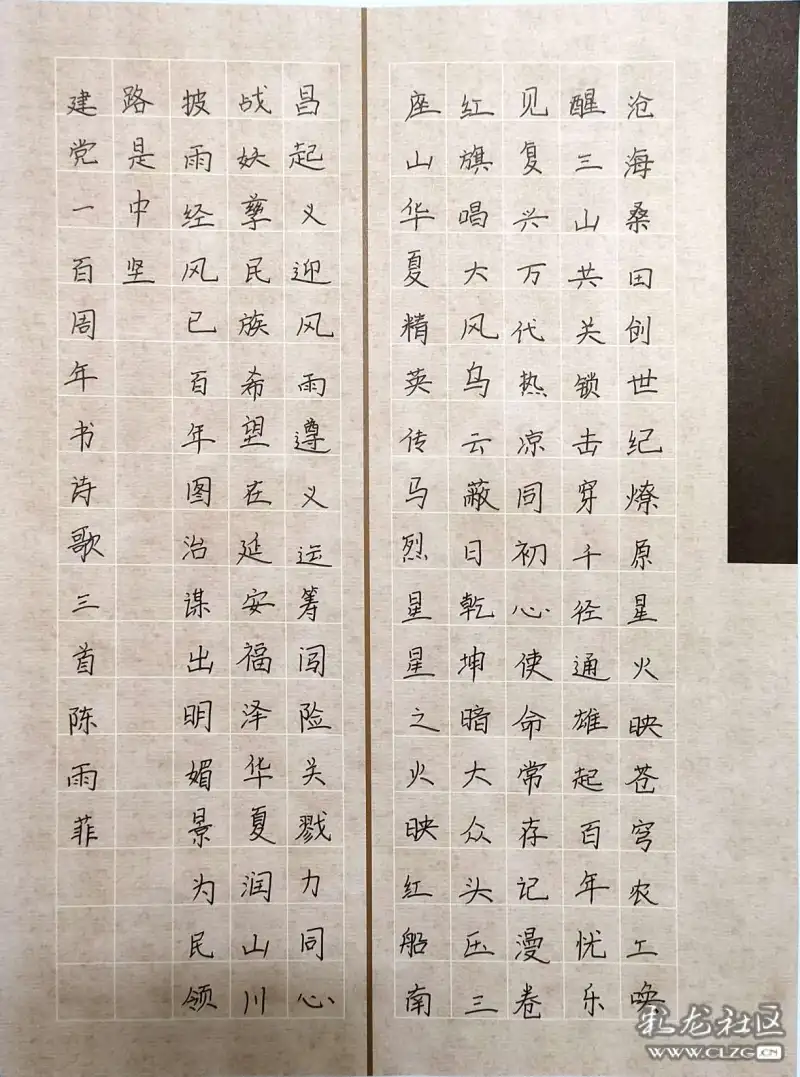 沧海桑田创世纪燎原星火映苍穹农工唤
醒三山共关锁击穿千径通雄起百年忧乐
见复兴万代热凉同初心使命常存记漫卷
红旗唱大风乌云蔽日乾坤暗大众头压三
座山华夏精英传马烈星星之火映红船南
昌起义迎风雨遵义运筹闯险关戮力同心
战妖孽民族希望在延安福泽华夏润山川
披雨经风已百年图治谋出明媚景为民领
路是中坚
建党一百周年书诗歌三首陈雨菲
札龙社区
WWW.CLZG.CN